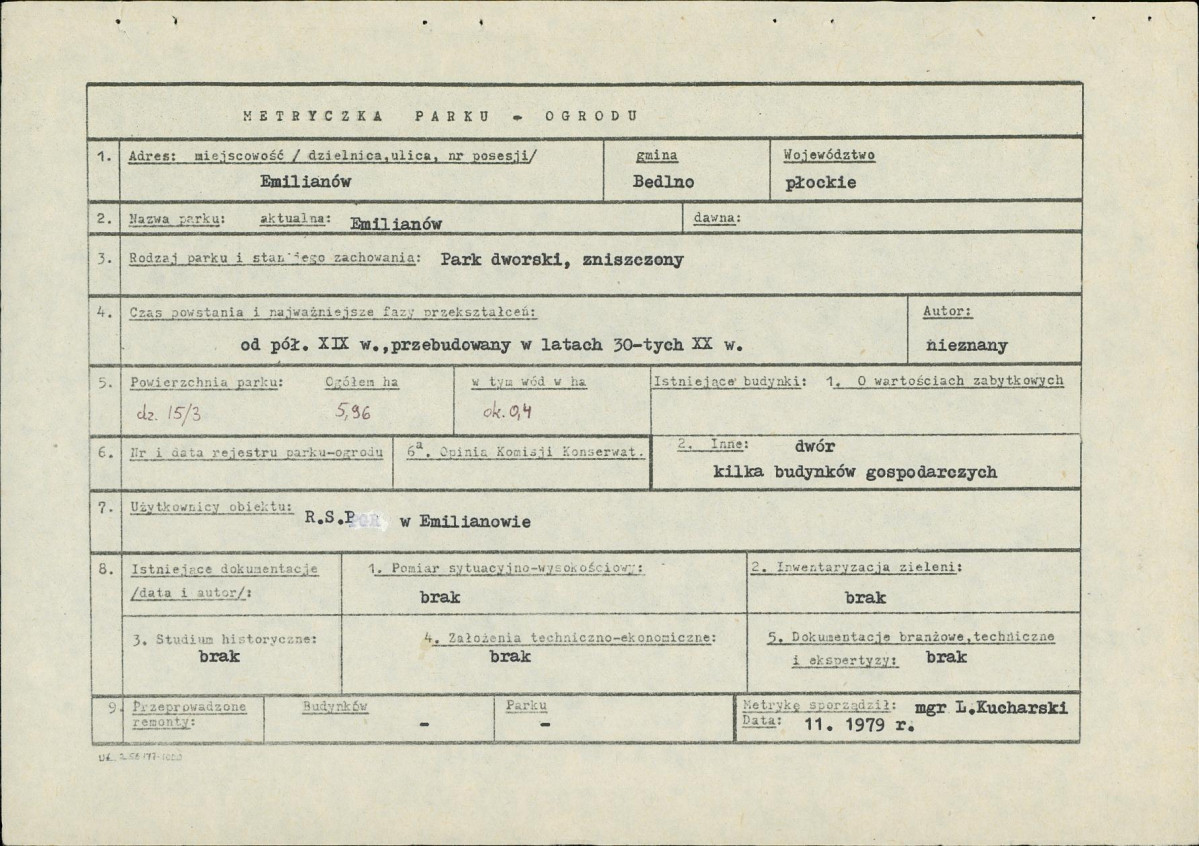 METRYCZKA PARKU - OGRODU
1. Adres: miejscowość / dzielnica,ulica, nr posesji/ gmina Województwo
Emilianów Bedlno płockie
2. Nazwa parku: aktualna: Emilianów dawna:
3. Rodzaj parku i stan jego zachowania: Park dworski, zniszczony
4. Czas powstania i najważniejsze fazy przekształceń: Autor:
od pół. XIX w.,przebudowany w latach 30-tych XX w. nieznany
5. Powierzchnia parku: Ogółem ha w tym wód w ha Istniejące budynki: 1. O wartościach zabytkowych
dz. 15/3 5,96 ok. 0,4
6. Nr i data rejestru parku-ogrodu 6a. Opinia Komisji Konserwat. 2. Inne: dwór
kilka budynków gospodarczych
7. Użytkownicy obiektu: R.S.P w Emilianowie
8. Istniejące dokumentacje 1. Pomiar sytuacyjno-wysokościowy: 2. Inwentaryzacja zieleni:
/data i autor/: brak brak
3. Studium historyczne: 4. Założenia techniczno-ekonomiczne: 5. Dokumentacje branżowe,techniczne
brak brak i ekspertyzy: brak
9. Przeprowadzone Budynków Parku Metrykę sporządził: mgr L.Kucharski
remonty: - - Data: 11. 1979 r.